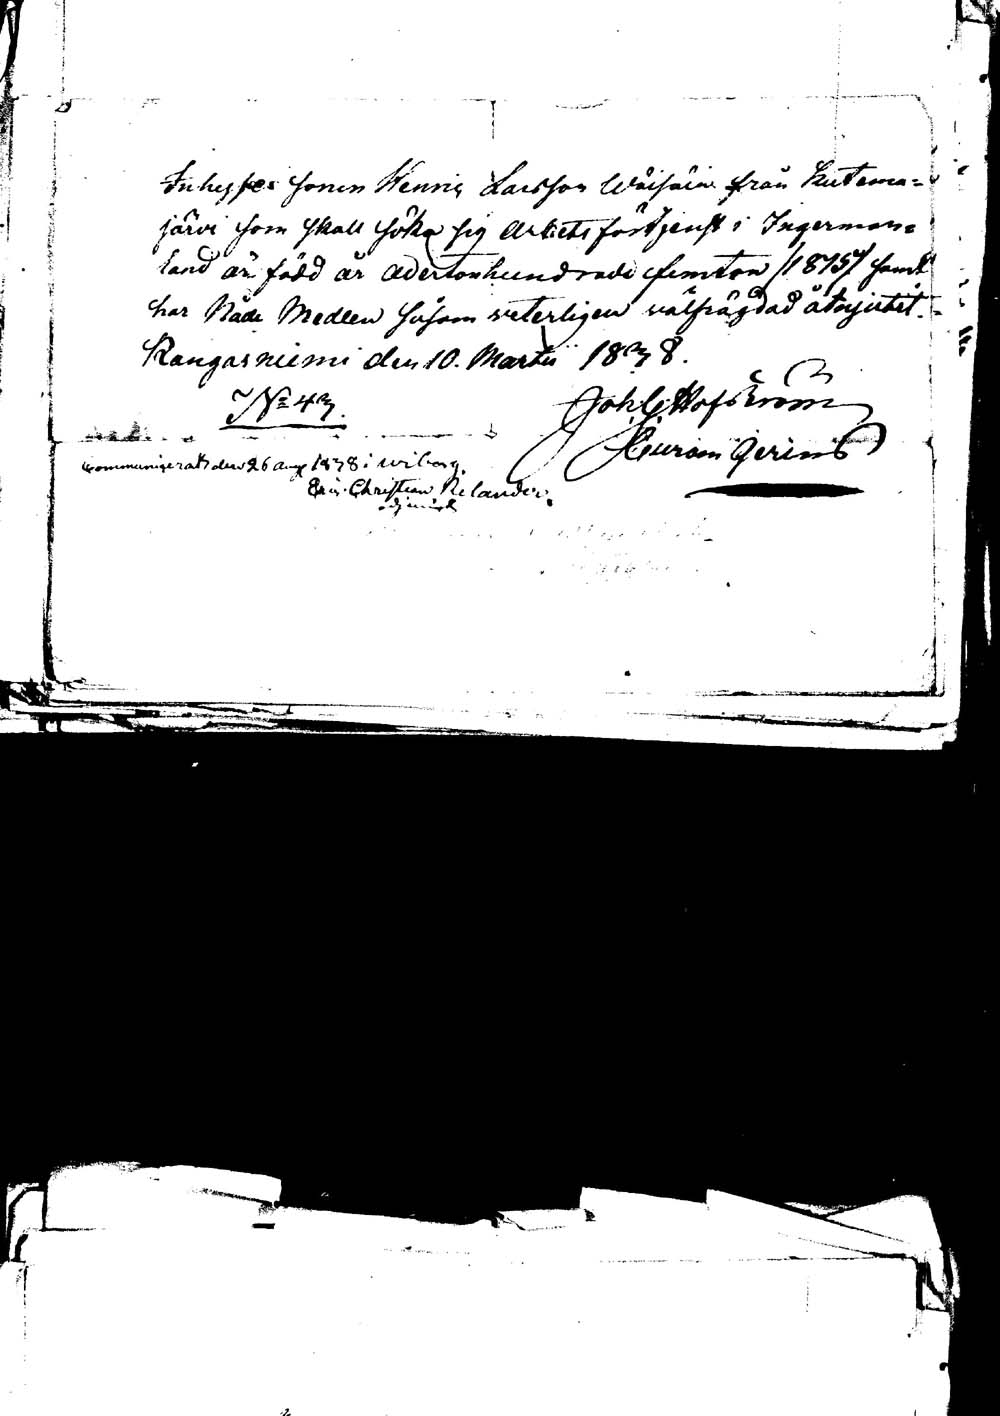 Inhyses sonen Henric Larsson Wäisäin från Kutema=
järvi som skall söka sig Arbetsförtjenst i Ingerman=
land är född år adertonhundrade femton /1815/ samt
har Nåde Medlen såsom veterligen välfrägdad åtnjutit.
Kangasniemi den 10. Martii 1838.
No 43.
Joh. G. Hofström
Communicerats den 26 aug 1838 i Wiborg.
Eric Christian Relander.
adjunct